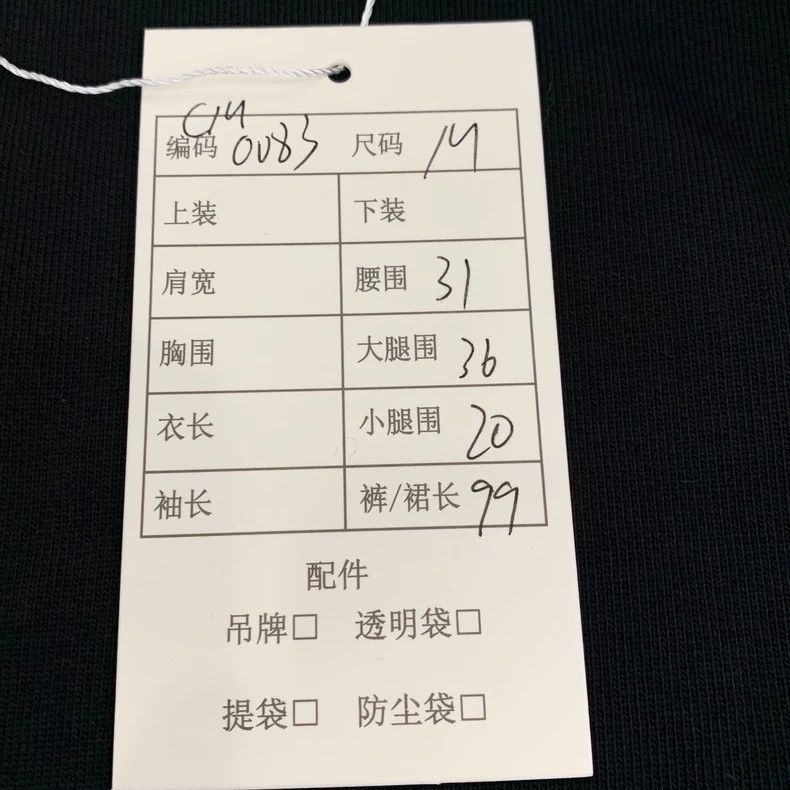 编码 0083 尺码
上装 下装
肩宽 腰围 31
胸围 大腿围 36
衣长 小腿围 20
袖长 裤/裙长 99
配件
吊牌□ 透明袋□
提袋□ 防尘袋□